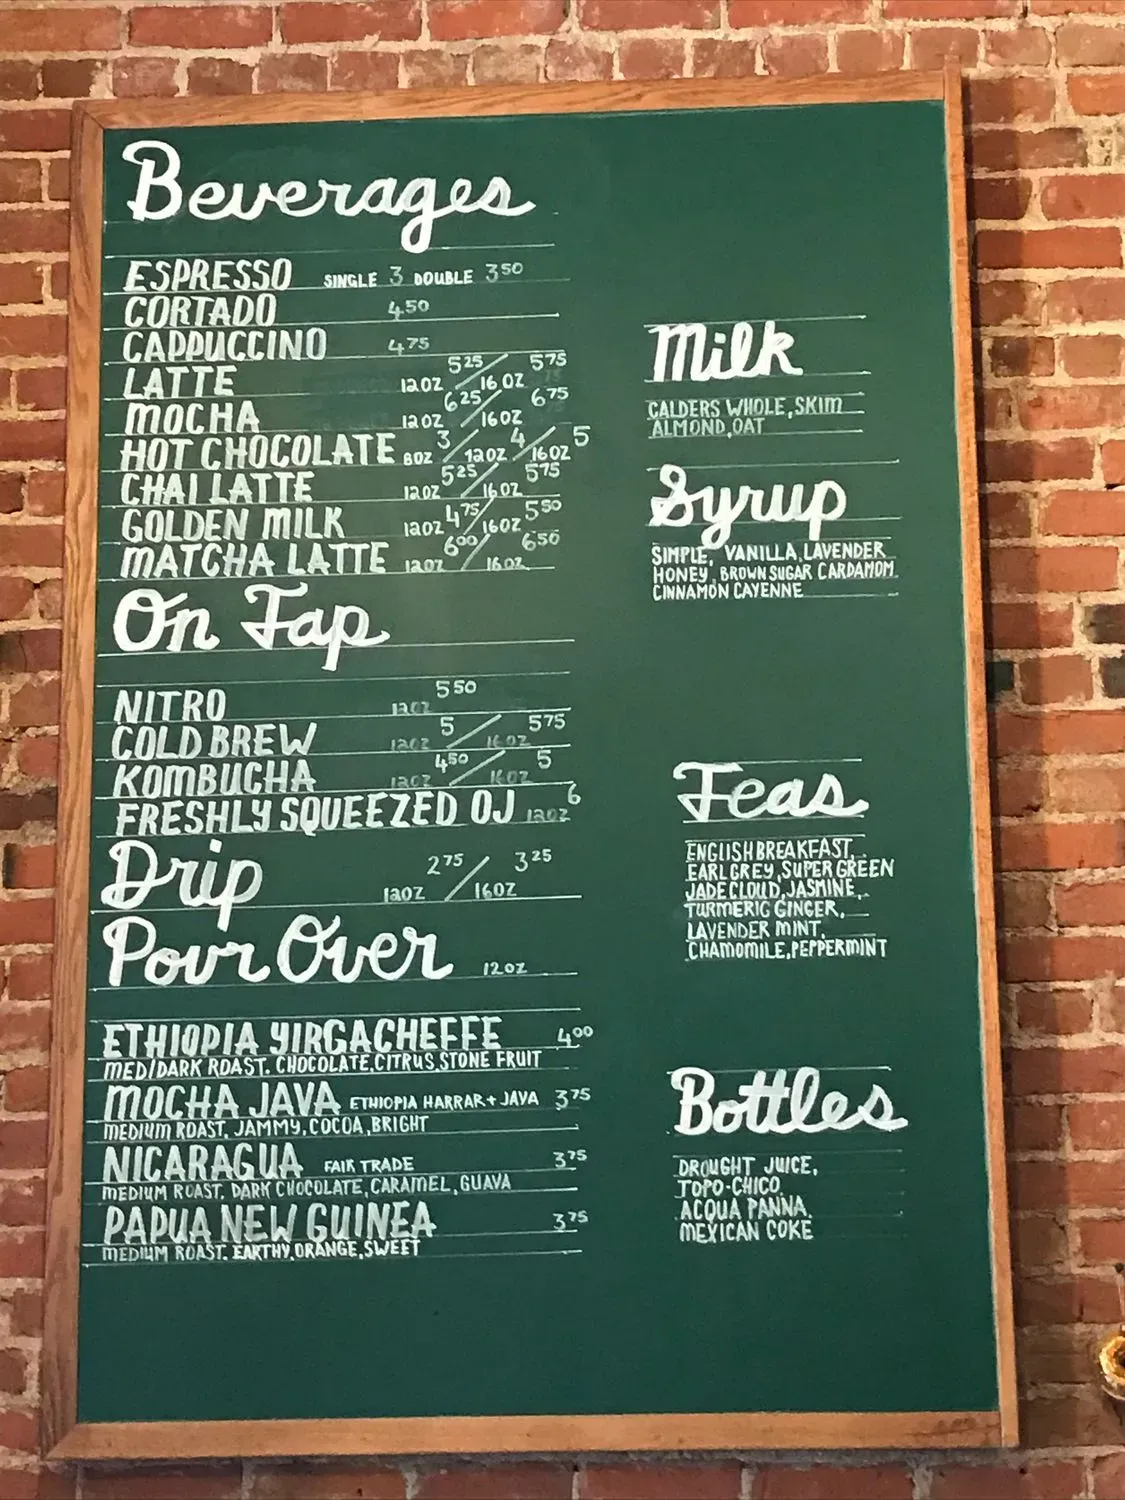 Beverages
ESPRESSO SINGLE 3 DOUBLE 3 50
CORTADO 4.50
CAPPUCCINO 4 75
LATTE 12 OZ 5 25 / 16 OZ 5 75
MOCHA 12 OZ 6 25 / 16 OZ 6 75
HOT CHOCOLATE 8 OZ 3 / 12 OZ 4 / 16 OZ 5
CHAI LATTE 12 OZ 5 25 / 16 OZ 5 75
GOLDEN MILK 12 OZ 4 75 / 16 OZ 5 50
MATCHA LATTE 12 OZ 6 00 / 16 OZ 6 50
On Tap
NITRO 12 OZ 5 50
COLD BREW 12 OZ 5 / 16 OZ 5 75
KOMBUCHA 12 OZ 4 50 / 16 OZ 5
FRESHLY SQUEEZED OJ 12 OZ 6
Drip 12 OZ 2 75 / 16 OZ 3 25
Pour Over 12 OZ
ETHIOPIA YIRGACHEFFE 4 00
MED/DARK ROAST. CHOCOLATE, CITRUS, STONE FRUIT
MOCHA JAVA ETHIOPIA HARRAR + JAVA 3 75
MEDIUM ROAST, JAMMY, COCOA, BRIGHT
NICARAGUA FAIR TRADE 3 75
MEDIUM ROAST, DARK CHOCOLATE, CARAMEL, GUAVA
PAPUA NEW GUINEA 3 75
MEDIUM ROAST. EARTHY, ORANGE, SWEET
Milk
CALDERS WHOLE, SKIM
ALMOND, OAT
Syrup
SIMPLE, VANILLA, LAVENDER
HONEY, BROWN SUGAR CARDAMOM
CINNAMON CAYENNE
Teas
ENGLISH BREAKFAST,
EARL GREY, SUPER GREEN
JADE CLOUD, JASMINE,
TURMERIC GINGER,
LAVENDER MINT,
CHAMOMILE, PEPPERMINT
Bottles
DROUGHT JUICE,
TOPO-CHICO,
ACQUA PANNA,
MEXICAN COKE